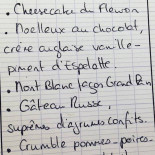 . Cheesecake du Fleuron
. Moelleux au chocolat,
crème anglaise vanille-
piment d'Espelette.
. Mont Blanc façon Grand Pin
. Gâteau Russe,
suprêmes d'agrumes confits.
. Crumble pommes-poires-